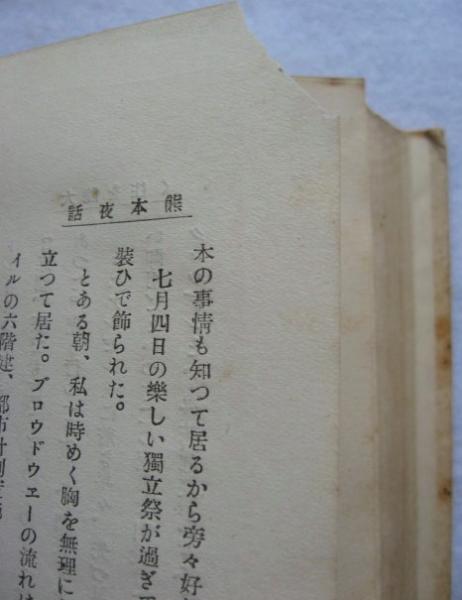 熊本夜話
本の事情も知つて居るから旁々好
七月四日の樂しい獨立祭が過ぎ
裝ひで飾られた。
とある朝、私は時めく胸を無理に
立つて居た。ブロウドウエーの流れは
イルの六階建、都市計劃